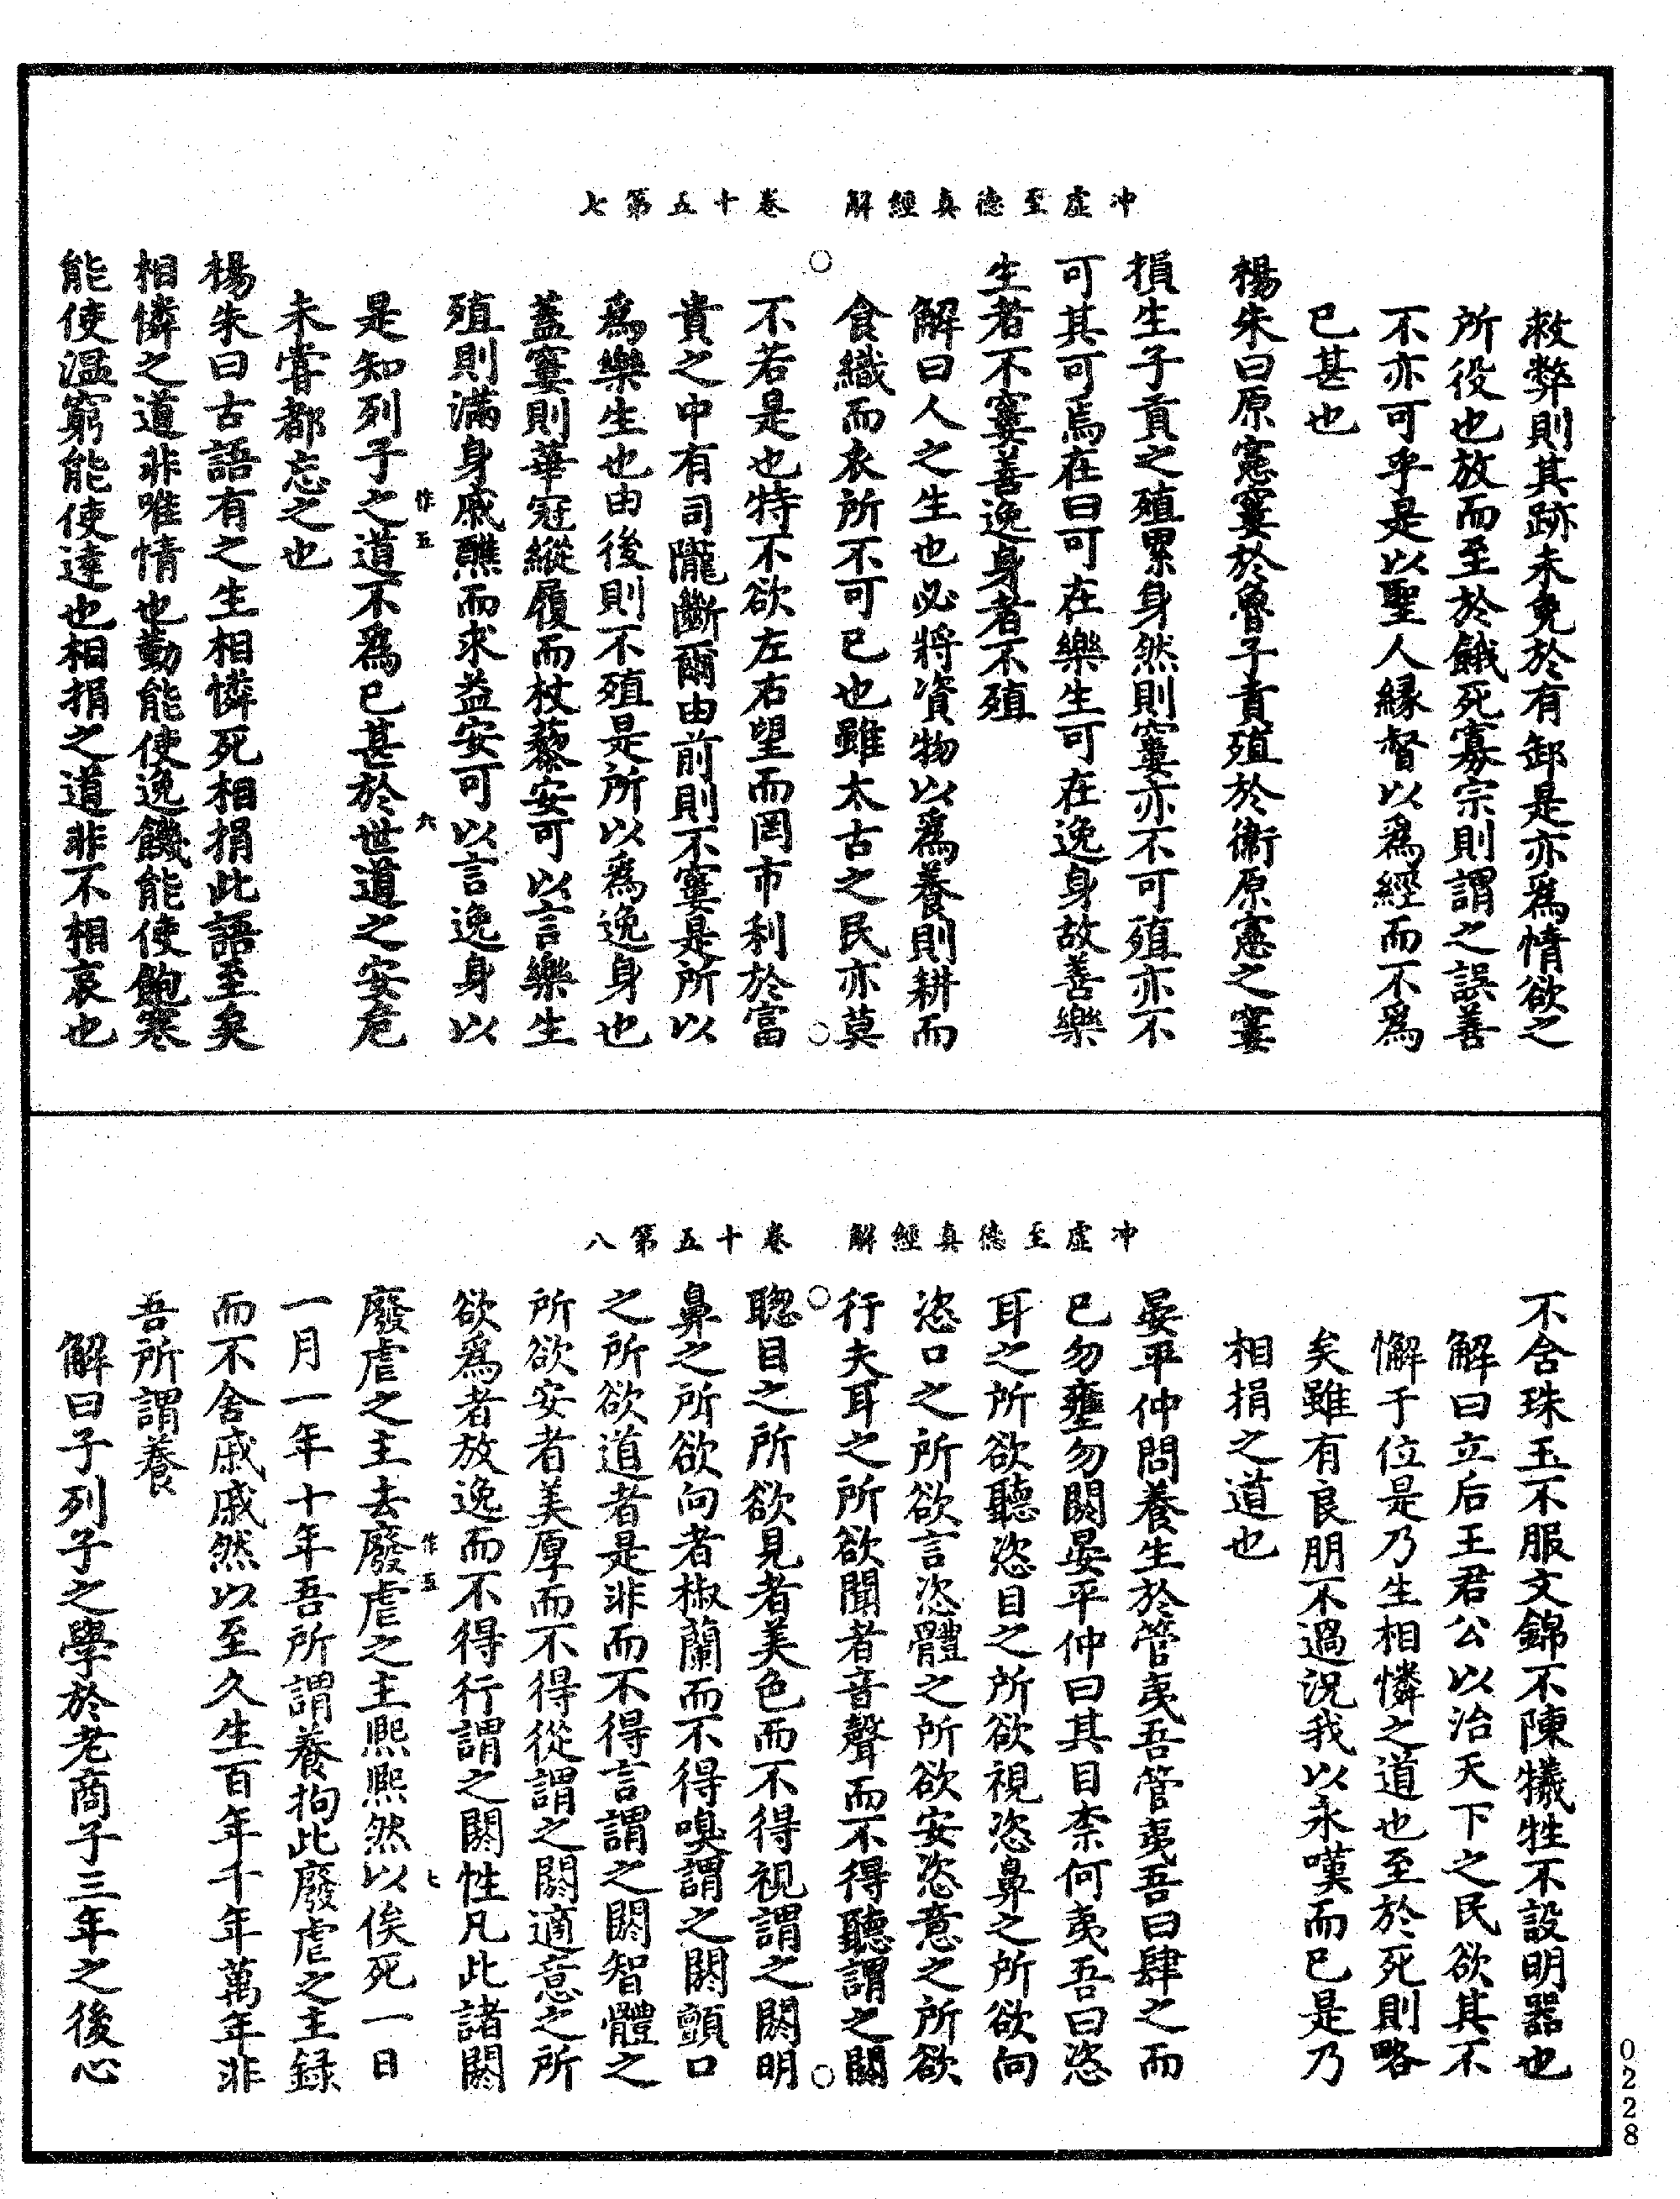 冲虛至德真經解　卷十五第七
救弊則其跡未免於有卸是亦爲情欲之
所役也放而至於餓死寡宗則謂之誤善
不亦可乎是以聖人緣督以爲經而不爲
已甚也
楊朱曰原憲窶於魯子貢殖於衛原憲之窶
損生子貢之殖累身然則窶亦不可殖亦不
可其可焉在曰可在樂生可在逸身故善樂
生者不窶善逸身者不殖
解曰人之生也必將資物以爲養則耕而
食織而衣所不可已也雖太古之民亦莫
不若是也特不欲左右望而罔市利於富
貴之中有司隴斷爾由前則不窶是所以
爲樂生也由後則不殖是所以爲逸身也
蓋窶則華冠縱履而杖藜安可以言樂生
殖則滿身戚醮而求益安可以言逸身以
作五　六
是知列子之道不爲已甚於世道之安危
未嘗都忘之也
楊朱曰古語有之生相憐死相捐此語至矣
相憐之道非唯情也勤能使逸饑能使飽寒
能使溫窮能使達也相捐之道非不相哀也
冲虛至德真經解　卷十五第八
不含珠玉不服文錦不陳犧牲不設明器也
解曰立后王君公以治天下之民欲其不
懈于位是乃生相憐之道也至於死則略
矣雖有良朋不過況我以永嘆而已是乃
相捐之道也
晏平仲問養生於管夷吾管夷吾曰肆之而
已勿壅勿閼晏平仲曰其目柰何夷吾曰恣
耳之所欲聽恣目之所欲視恣鼻之所欲向
恣口之所欲言恣體之所欲安恣意之所欲
行夫耳之所欲聞者音聲而不得聽謂之閼
聰目之所欲見者美色而不得視謂之閼明
鼻之所欲向者椒蘭而不得嗅謂之閼顫口
之所欲道者是非而不得言謂之閼智體之
所欲安者美厚而不得從謂之閼適意之所
欲爲者放逸而不得行謂之閼性凡此諸閼
作五　七
廢虐之主去廢虐之主熙熙然以俟死一日
一月一年十年吾所謂養拘此廢虐之主録
而不舍戚戚然以至久生百年千年萬年非
吾所謂養
解曰子列子之學於老商子三年之後心
0228